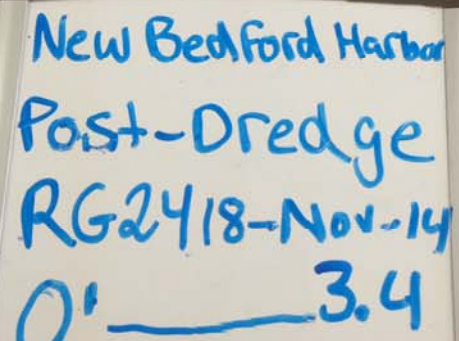 New Bedford Harbor
Post-Dredge
RG2418-Nov-14
0'______3.4